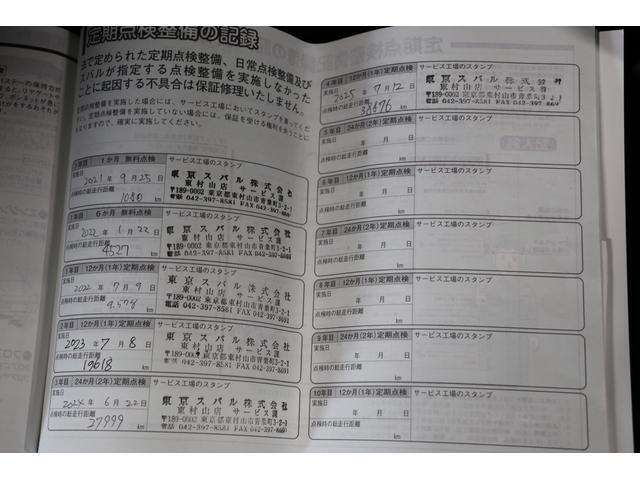 定期点検整備の記録
法で定められた定期点検整備、日常点検整備及び
スバルが指定する点検整備を実施しなかった
ことに起因する不具合は保証修理いたしません。
定期点検整備を実施した場合には、サービス工場においてスタンプを
い。定期点検整備を実施していない場合には、保証を受ける権利を失うことに
なりますので、確実に実施してください。
1か月 無料点検
サービス工場のスタンプ
実施日
2021年 9月 25日
点検時の総走行距離
1080 km
東京スバル株式会社
東村山店 サービス課
〒189-0002 東京都東村山市青葉町3-2-1
電話 042-397-8581 FAX 042-397-8691
1年目 6か月 無料点検
サービス工場のスタンプ
実施日
2022年 1月 22日
点検時の総走行距離
4527 km
東京スバル株式会社
東村山店 サービス課
〒189-0002 東京都東村山市青葉町3-2-1
電話 042-397-8581 FAX 042-397-8691
1年目 12か月(1年)定期点検
サービス工場のスタンプ
実施日
2022年 7月 9日
点検時の総走行距離
9598 km
東京スバル株式会社
東村山店 サービス課
〒189-0002 東京都東村山市青葉町3-2-1
電話 042-397-8581 FAX 042-397-8691
2年目 12か月(1年)定期点検
サービス工場のスタンプ
実施日
2023年 7月 8日
点検時の総走行距離
19618 km
東京スバル株式会社
東村山店 サービス課
〒189-0002 東京都東村山市青葉町3-2-1
電話 042-397-8581 FAX 042-397-8691
3年目 24か月(2年)定期点検
サービス工場のスタンプ
実施日
2024年 6月 22日
点検時の総走行距離
27999 km
東京スバル株式会社
東村山店 サービス課
〒189-0002 東京都東村山市青葉町3-2-1
電話 042-397-8581 FAX 042-397-8691
4年目 12か月(1年)定期点検
サービス工場のスタンプ
実施日
2025年 7月 12日
点検時の総走行距離
38876 km
東京スバル株式会社
東村山店 サービス課
〒189-0002 東京都東村山市青葉町3-2-1
電話 042-397-8581 FAX 042-397-8691
5年目 24か月(2年)定期点検
サービス工場のスタンプ
実施日
年 月 日
点検時の総走行距離
km
6年目 12か月(1年)定期点検
サービス工場のスタンプ
実施日
年 月 日
点検時の総走行距離
km
7年目 24か月(2年)定期点検
サービス工場のスタンプ
実施日
年 月 日
点検時の総走行距離
km
8年目 12か月(1年)定期点検
サービス工場のスタンプ
実施日
年 月 日
点検時の総走行距離
km
9年目 24か月(2年)定期点検
サービス工場のスタンプ
実施日
年 月 日
点検時の総走行距離
km
10年目 12か月(1年)定期点検
サービス工場のスタンプ
実施日
年 月 日
点検時の総走行距離
km